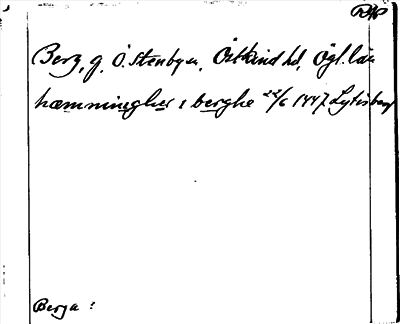 RAP
Berg, g. Ö. Stenby sn, Östkind hd, Ögl. län
hæmmingher i berghe 22/6 1447 Lytisberg
Berga :